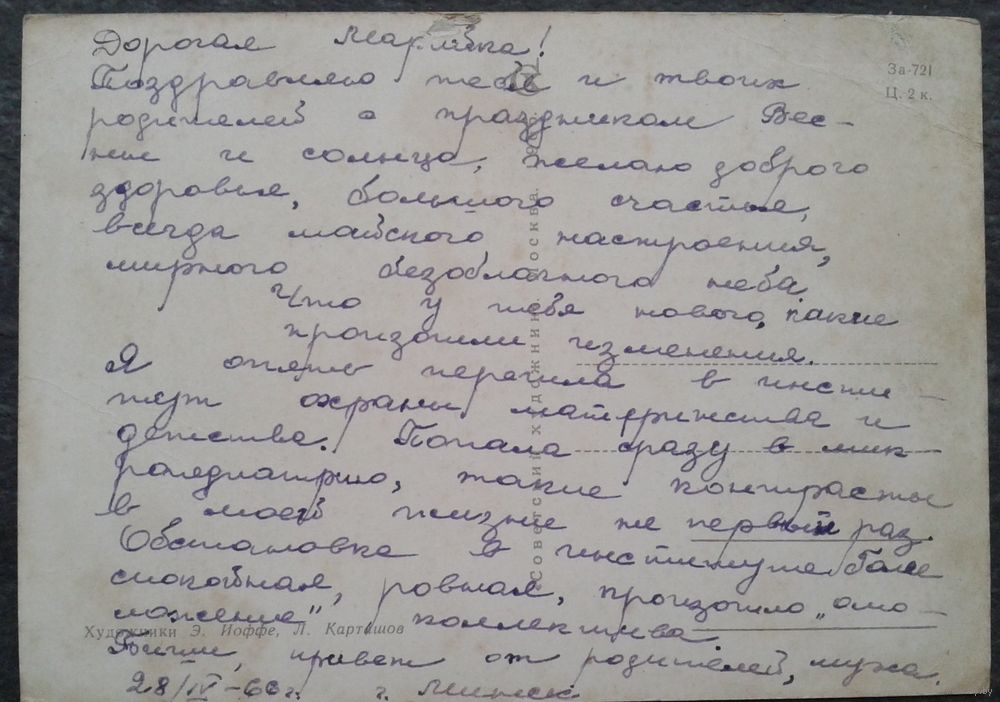 Дорогая Марийка!
Поздравляю тебя и твоих
За-721
Ц. 2 к.
родителей с праздником Вес-
ны и солнца, желаю доброго
здоровья, большого счастья,
всегда майского настроения,
мирного безоблачного неба
Что у тебя нового, какие
произошли изменения.
Я опять перешла в инсти-
тут охраны материнства и
детства. Попала сразу в мик-
ропедиатрию, такие контрасты
в моей жизни не первый раз.
Обстановка в институте более
спокойная, ровная, произошло "омо-
ложение" коллектива.
Художники Э. Иоффе, Л. Карташов
Пиши, привет от родителей, мужа.
28/IV-66 г. г. Минск
Советский художник. Москва.